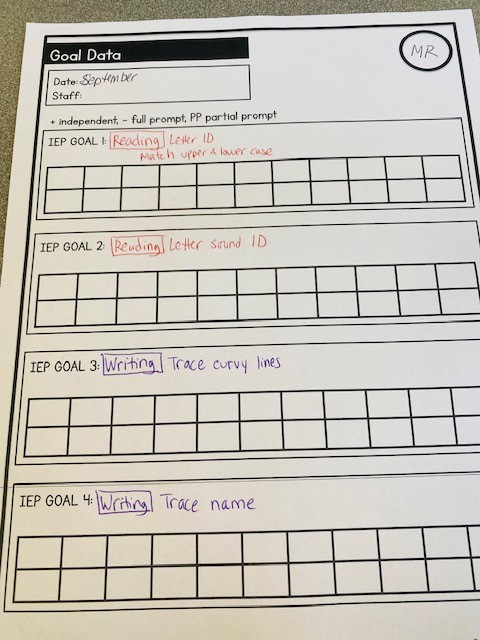 Goal Data
MR
Date: September
Staff:
+ independent, - full prompt, PP partial prompt
IEP GOAL 1: Reading Letter ID
Match upper & lower case
IEP GOAL 2: Reading Letter sound ID
IEP GOAL 3: Writing Trace curvy lines
IEP GOAL 4: Writing Trace name